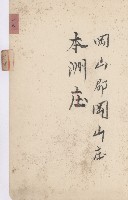 岡山郡岡山庄
本洲庄